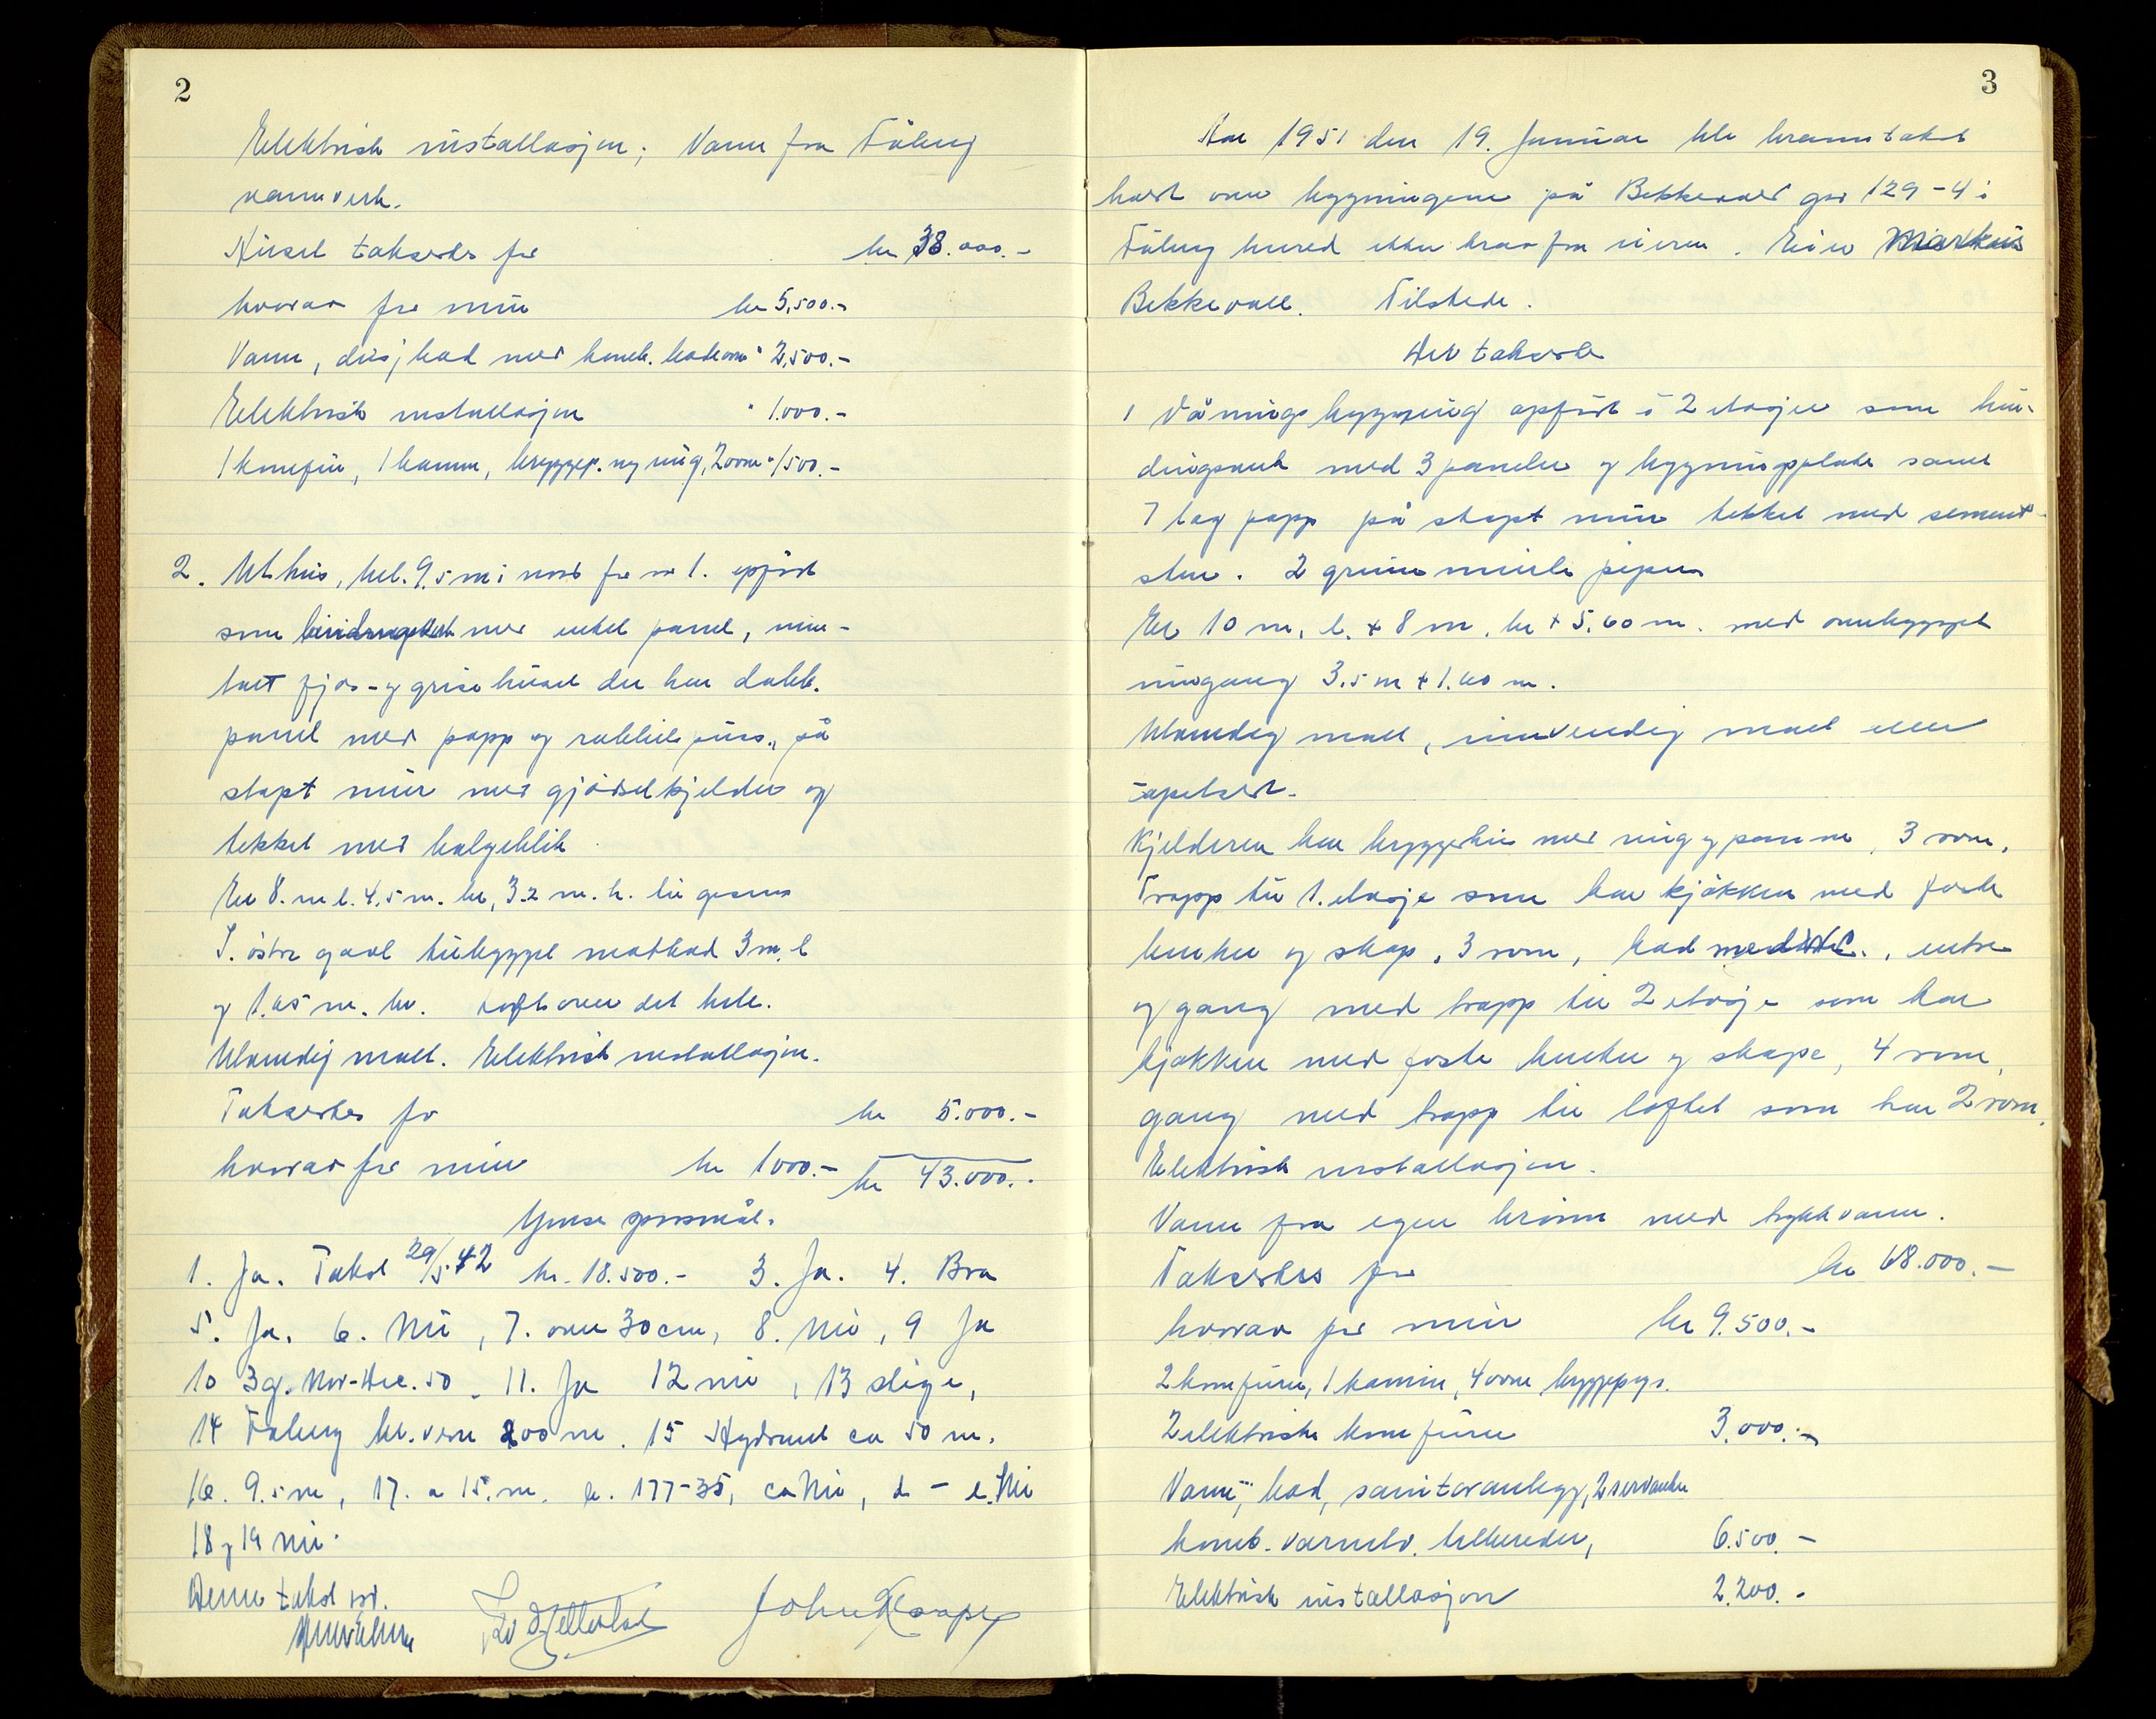 2
Elektrisk installasjon; Vann fra Fåberg
vannverk.
Huset takseres for kr 38.000.-
hvorav for mur kr 5.500.-
Vann, dusjbad med komb. badeovn " 2.500.-
Elektrisk installasjon " 1.000.-
1 komfur, 1 kamin, bryggep. ny ring, 2 ovne " 1500.-
2. Uthus, bel. 9.5 m i nord for nr 1. opført
som bindingsverk med enkel panel, unn-
tatt fjøs- og grisehuset der har dobb.
panel med papp og rabbit puss, på
støpt mur med gjødselkjelder og
tekket med bølgeblik
Er 8. m l. 4,5 m. br, 3.2 m. h. til gesims
I. østre gavl tilbygget vedbod 3 m. l
og 1.65 m. br. Loft over det hele.
Utvendig malt. Elektrisk installasjon.
Takseres for kr 5.000.-
hvorav for mur kr 1000.- kr 43.000.-
Ymse spørsmål.
1. Ja. Takst 29/5.42 kr. 18.500.- 3. Ja. 4. Bra
5. Ja. 6. Nei, 7. over 30 cm, 8. Nei, 9 Ja
10 3 g. Nov-Des. 50. 11. Ja 12 nei, 13 stige,
14 Fåberg br. vern 200 m. 15 Hydrant ca 50 m.
16. 9.5 m, 17. a 15. m. b. 177-35, c Nei, d - e. Nei
18 og 19 nei.
Denne takst
John Kampe
3
Aar 1951 den 19. Januar ble branntakst
holdt over bygningene på Bekkevold gnr 129-4 i
Fåberg herred etter krav fra eieren. Eier Markus
Bekkevoll. Tilstede.
Det takseres
1 Våningsbygning opført i 2 etasjer som bin-
dingsverk med 3 paneler og bygningsplate samt
7 lag papp på støpt mur tekket med sement-
sten. 2 grunnmurte piper
Er 10 m. l. + 8 m. br + 5.60 m. med ombygget
inngang 3.5 m + 1.60 m.
Utvendig malt, innvendig malt eller
tapetsert.
Kjelderen har bryggerhus med ring og panne, 3 rom,
Trapp til 1. etasje som har kjøkken med faste
benker og skap, 3 rom, bad med w.c., entre
og gang med trapp til 2 etasje som har
kjøkken med faste benker og skape, 4 rom,
gang med trapp til loftet som har 2 rom.
Elektrisk installasjon.
Vann fra egen brønn med trykkvann.
Takseres for kr 68.000.-
hvorav for mur kr 9.500.-
2 komfurer, 1 kamin, 4 ovne
2 elektriske komfurer 3.000.-
Vann, bad, sanitæranlegg, 2 servanter
komb. varmtv. beholder, 6.500.-
Elektrisk installasjon 2.200.-